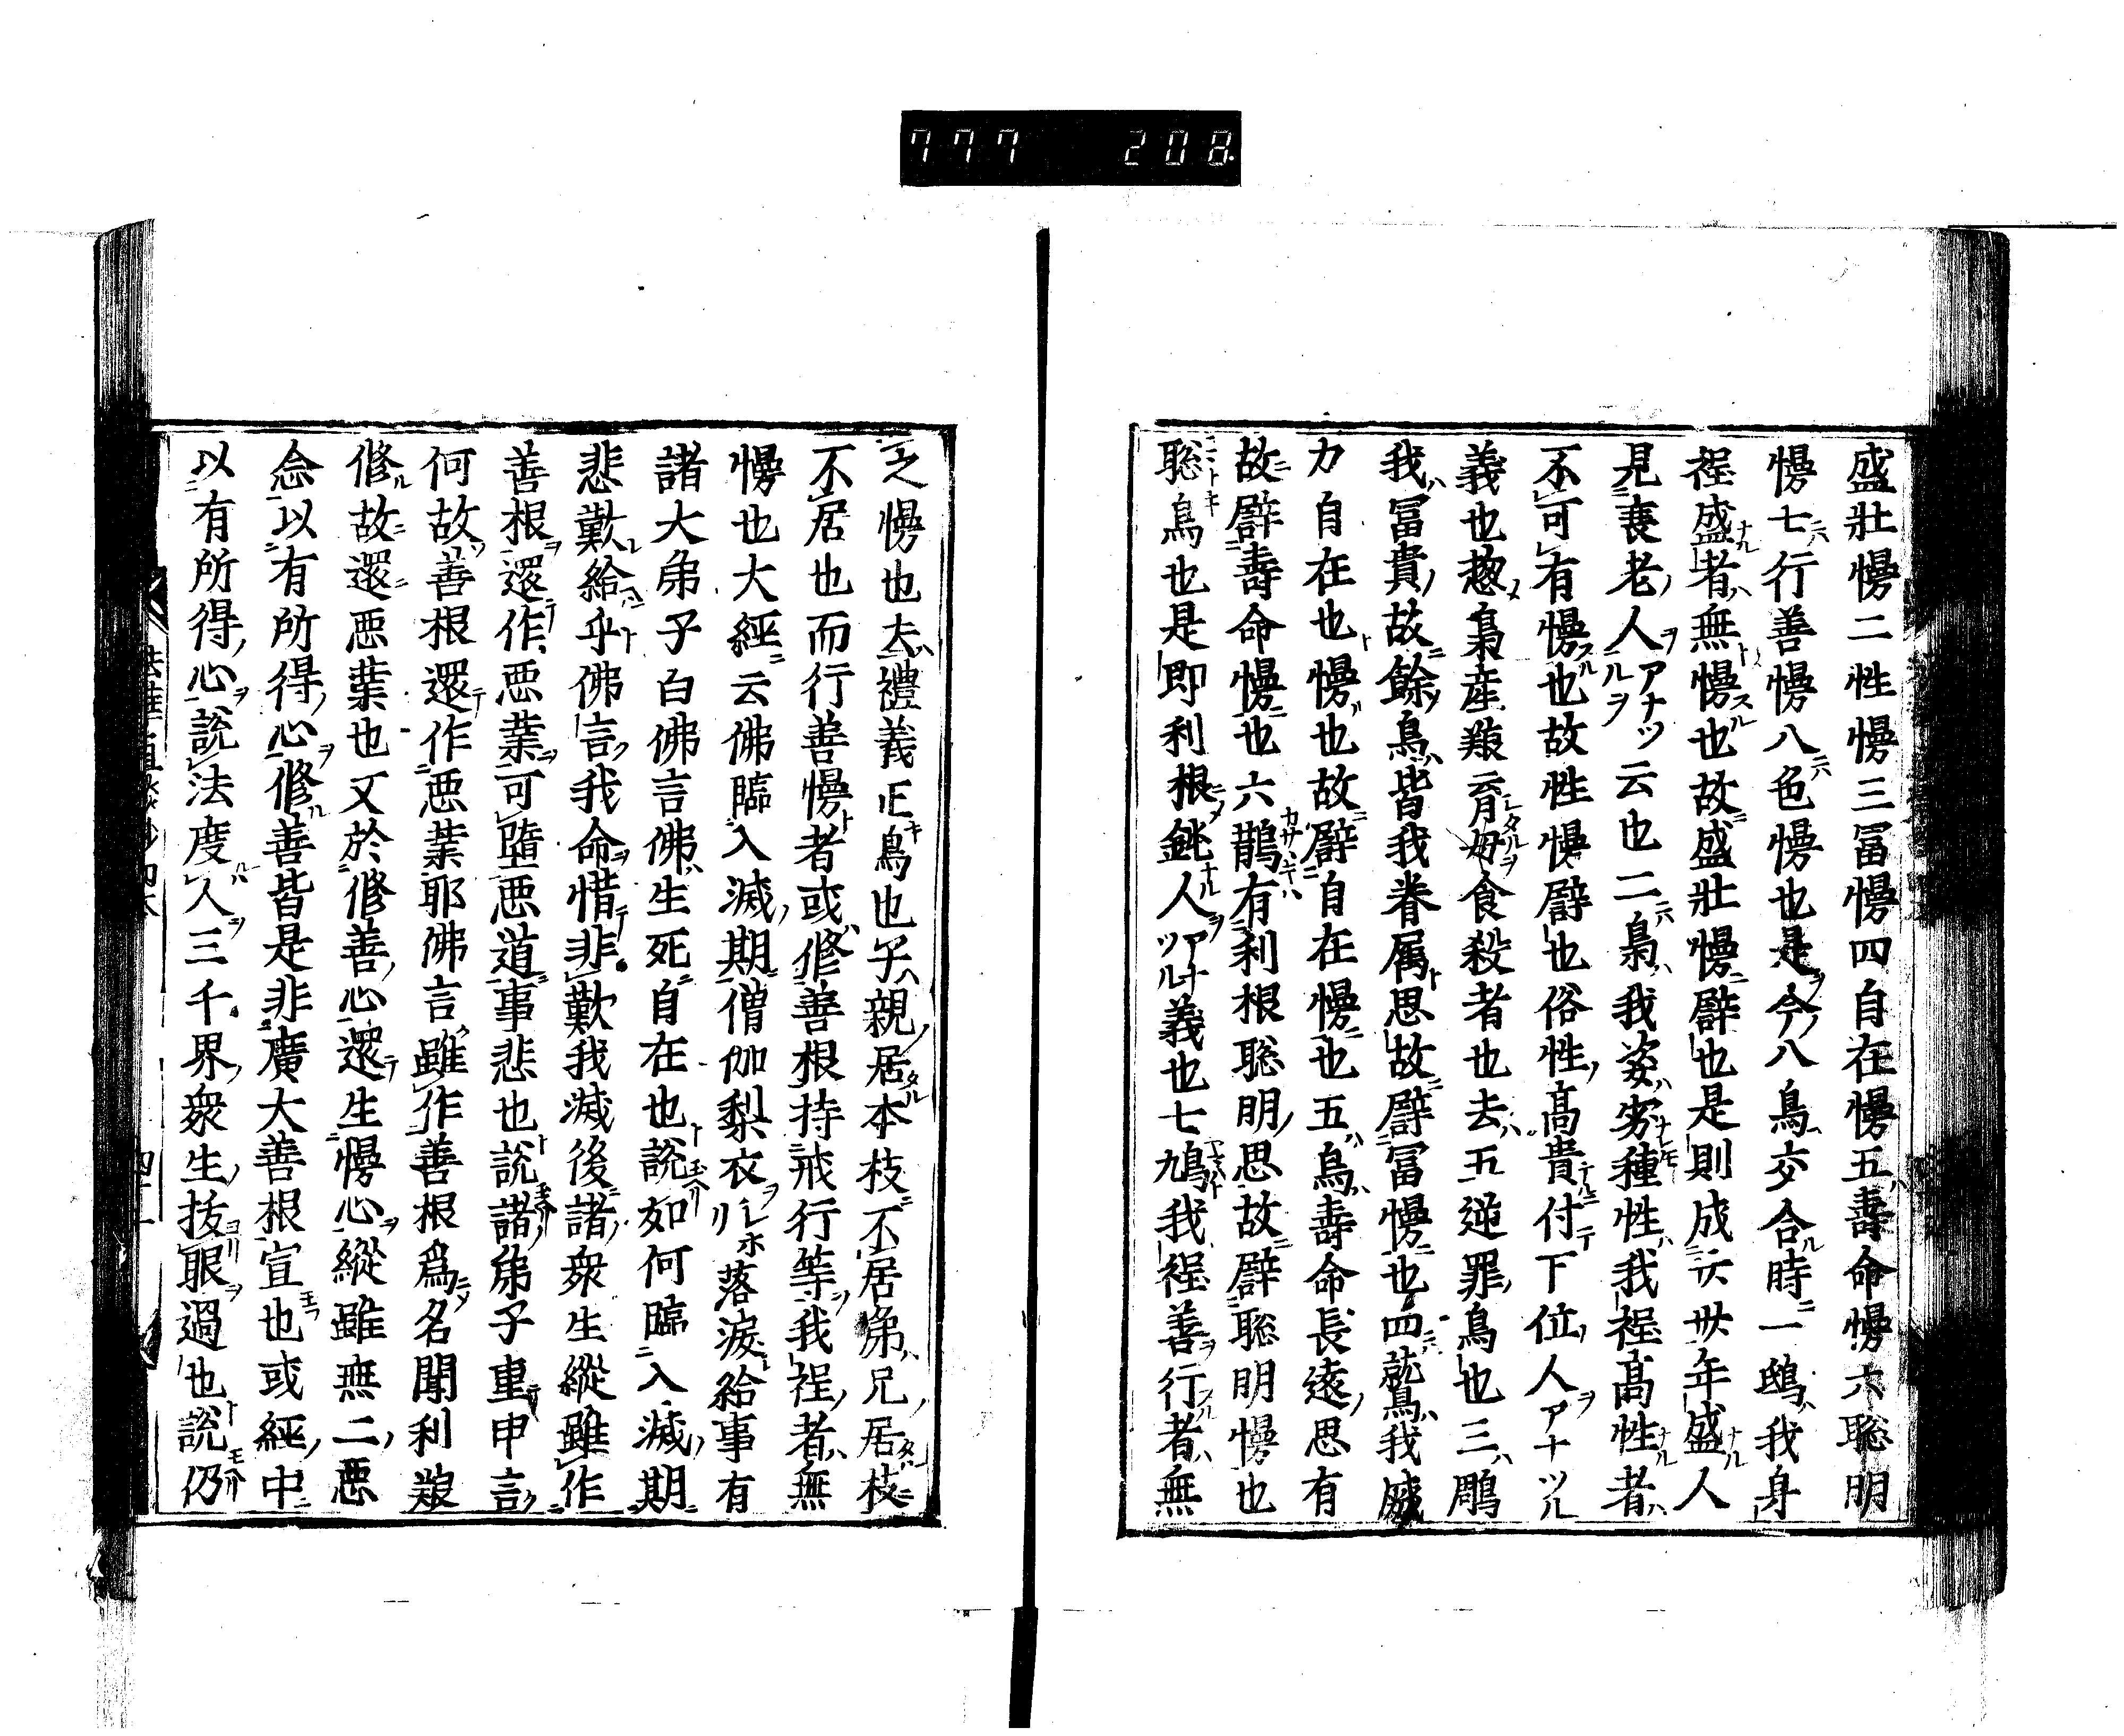 777 208
盛壯慢二性慢三冨慢四自在慢五壽命慢六聡明
慢七行善慢八色慢也是今八鳥交合時一鴟我身
程盛者無慢也故盛壯慢譬也是則成六世年盛人
見衰老人アナツルヲ云也二梟我姿劣種性我程髙性者
不可有慢也故性慢譬也俗性髙貴付下位人アナツル
義也惣梟産粮育母食殺者也去五逆罪鳥也三鵰
我冨貴故餘鳥皆我眷属思故譬冨慢也四鷲我威
力自在也慢也故譬自在慢也五烏壽命長遠思有
故譬壽命慢也六鵲有利根聡明思故譬聡明慢也
聡鳥也是即利根鈍人アナツル義也七鳩我程善行者無
之慢也去禮義正鳥也子親居本枝不居弟兄居枝
不居也而行善慢者或修善根持戒行等我程者無
慢也大經云佛臨入滅期僧伽梨衣ヲシホリ落淚給事有
諸大弟子白佛言佛生死自在也說如何臨入滅期
悲歎給乎佛言我命惜非歎我滅後諸衆生縱雖作
善根還作惡業可墮惡道事悲也說諸弟子重申言
何故善根還作惡業耶佛言雖作善根爲名聞利粮
修故還惡業也又於修善心還生慢心縱雖無二惡
念以有所得心修善皆是非廣大善根宣也或經中
以有所得心說法度人三千界衆生抜眼過也說仍